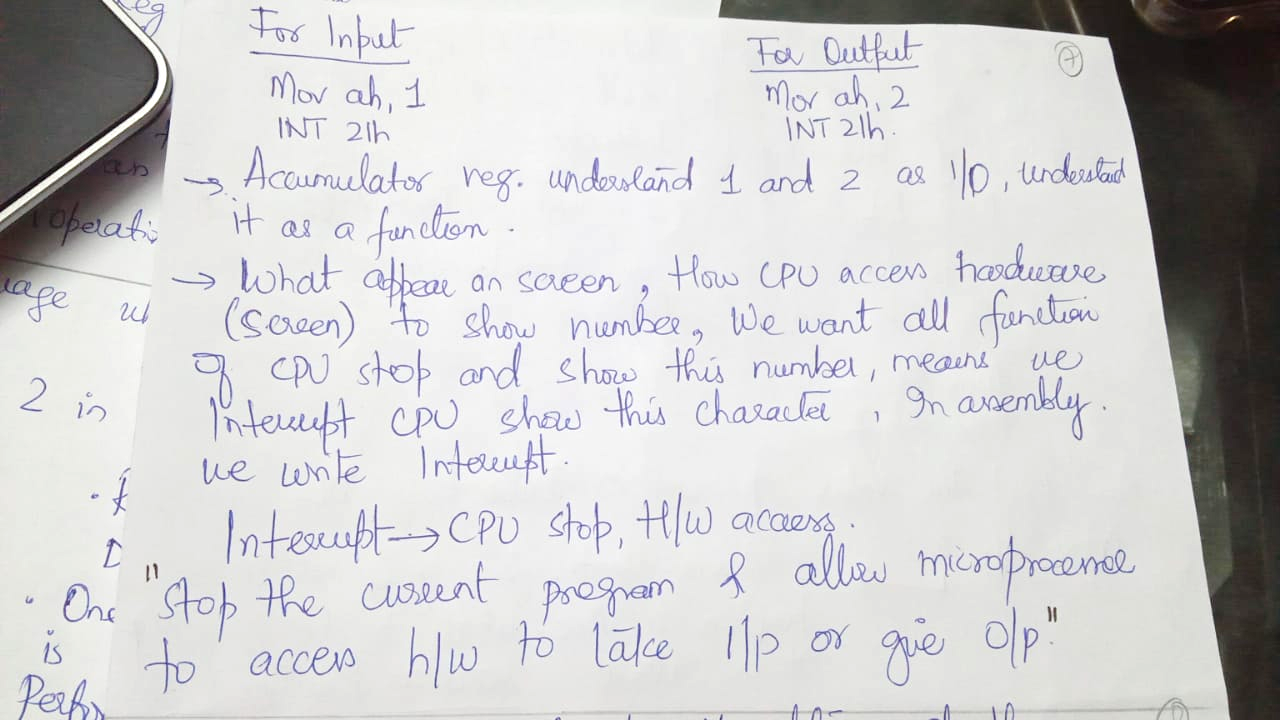 For Input
Mov ah, 1
INT 21h
For Output
Mov ah, 2
INT 21h.
7
→ Accumulator reg. understand 1 and 2 as I/O, understand
it as a function.
→ What appear on screen, How CPU access hardware
(screen) to show number, We want all function
Of CPU stop and show this number, means we
Interrupt CPU show this character, In assembly.
we write Interrupt.
Interrupt → CPU stop, H/W access.
"stop the current program & allow microprocessor
to access h/w to take I/p or give O/p."
an
operatio
uage
2 in
• One
is
Perfor